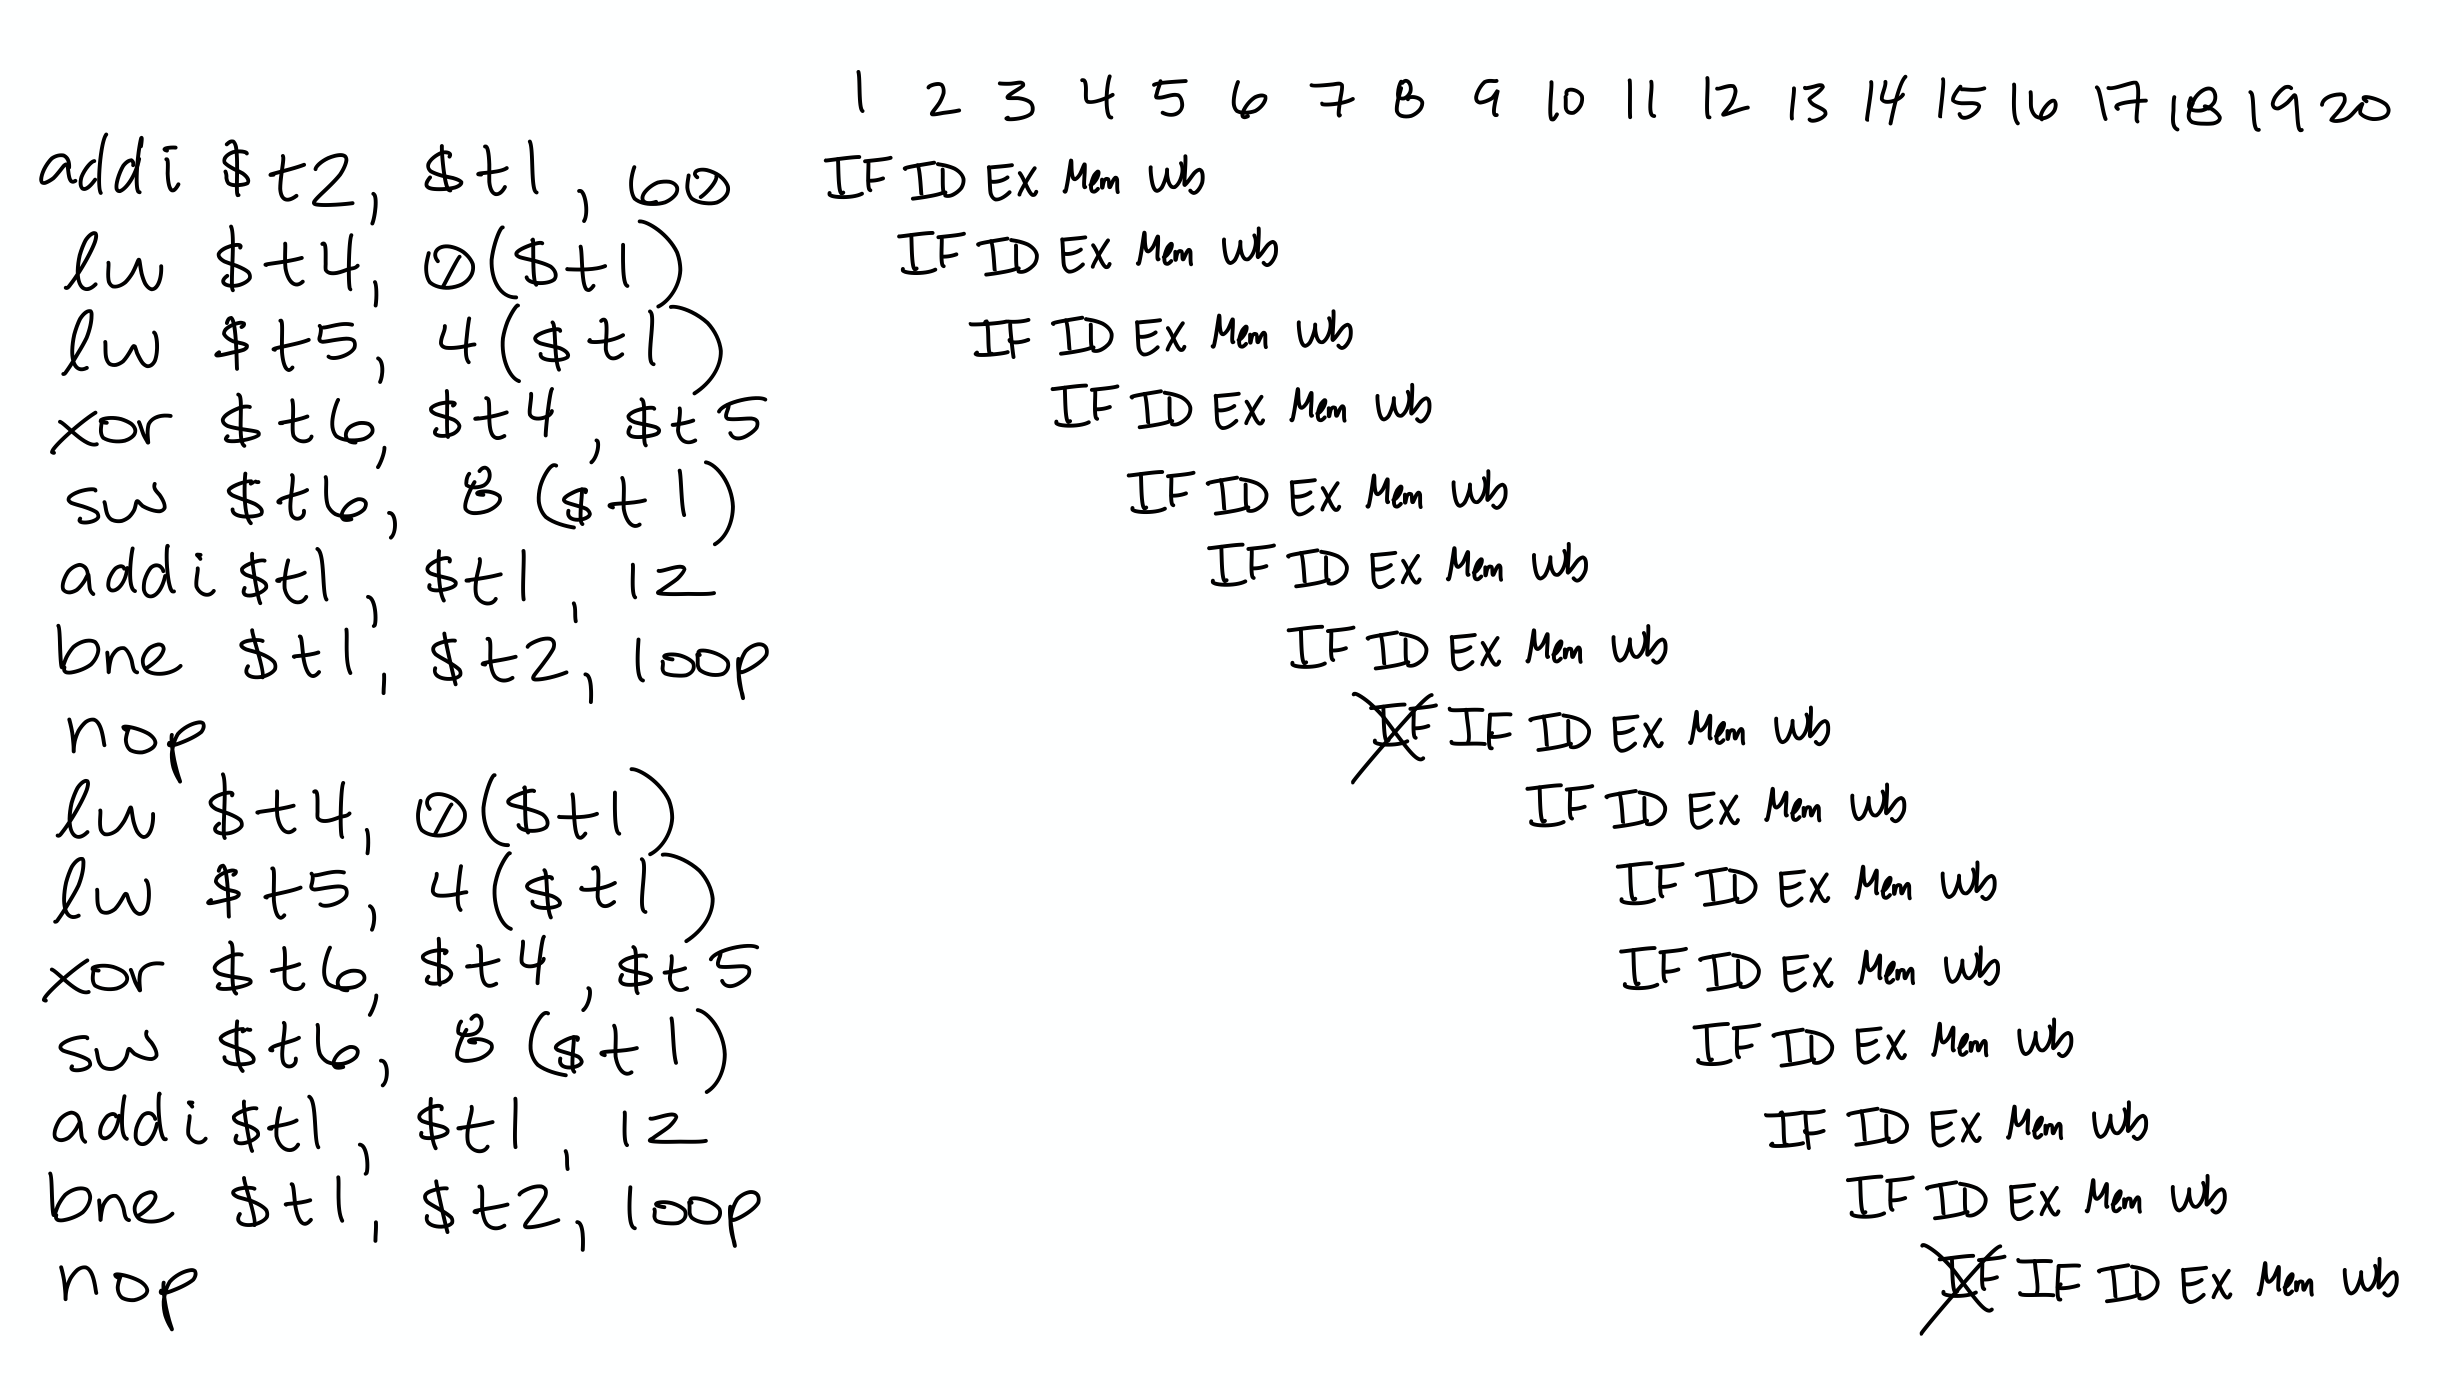 1 2 3 4 5 6 7 8 9 10 11 12 13 14 15 16 17 18 19 20
addi $t2, $t1, 60 IF ID EX Mem Wb
lw $t4, 0($t1) IF ID EX Mem Wb
lw $t5, 4($t1) IF ID EX Mem Wb
xor $t6, $t4, $t5 IF ID EX Mem Wb
sw $t6, 8($t1) IF ID EX Mem Wb
addi $t1, $t1, 12 IF ID EX Mem Wb
bne $t1, $t2, loop IF ID EX Mem Wb
nop IF IF ID EX Mem Wb
lw $t4, 0($t1) IF ID EX Mem Wb
lw $t5, 4($t1) IF ID EX Mem Wb
xor $t6, $t4, $t5 IF ID EX Mem Wb
sw $t6, 8($t1) IF ID EX Mem Wb
addi $t1, $t1, 12 IF ID EX Mem Wb
bne $t1, $t2, loop IF ID EX Mem Wb
nop IF IF ID EX Mem Wb